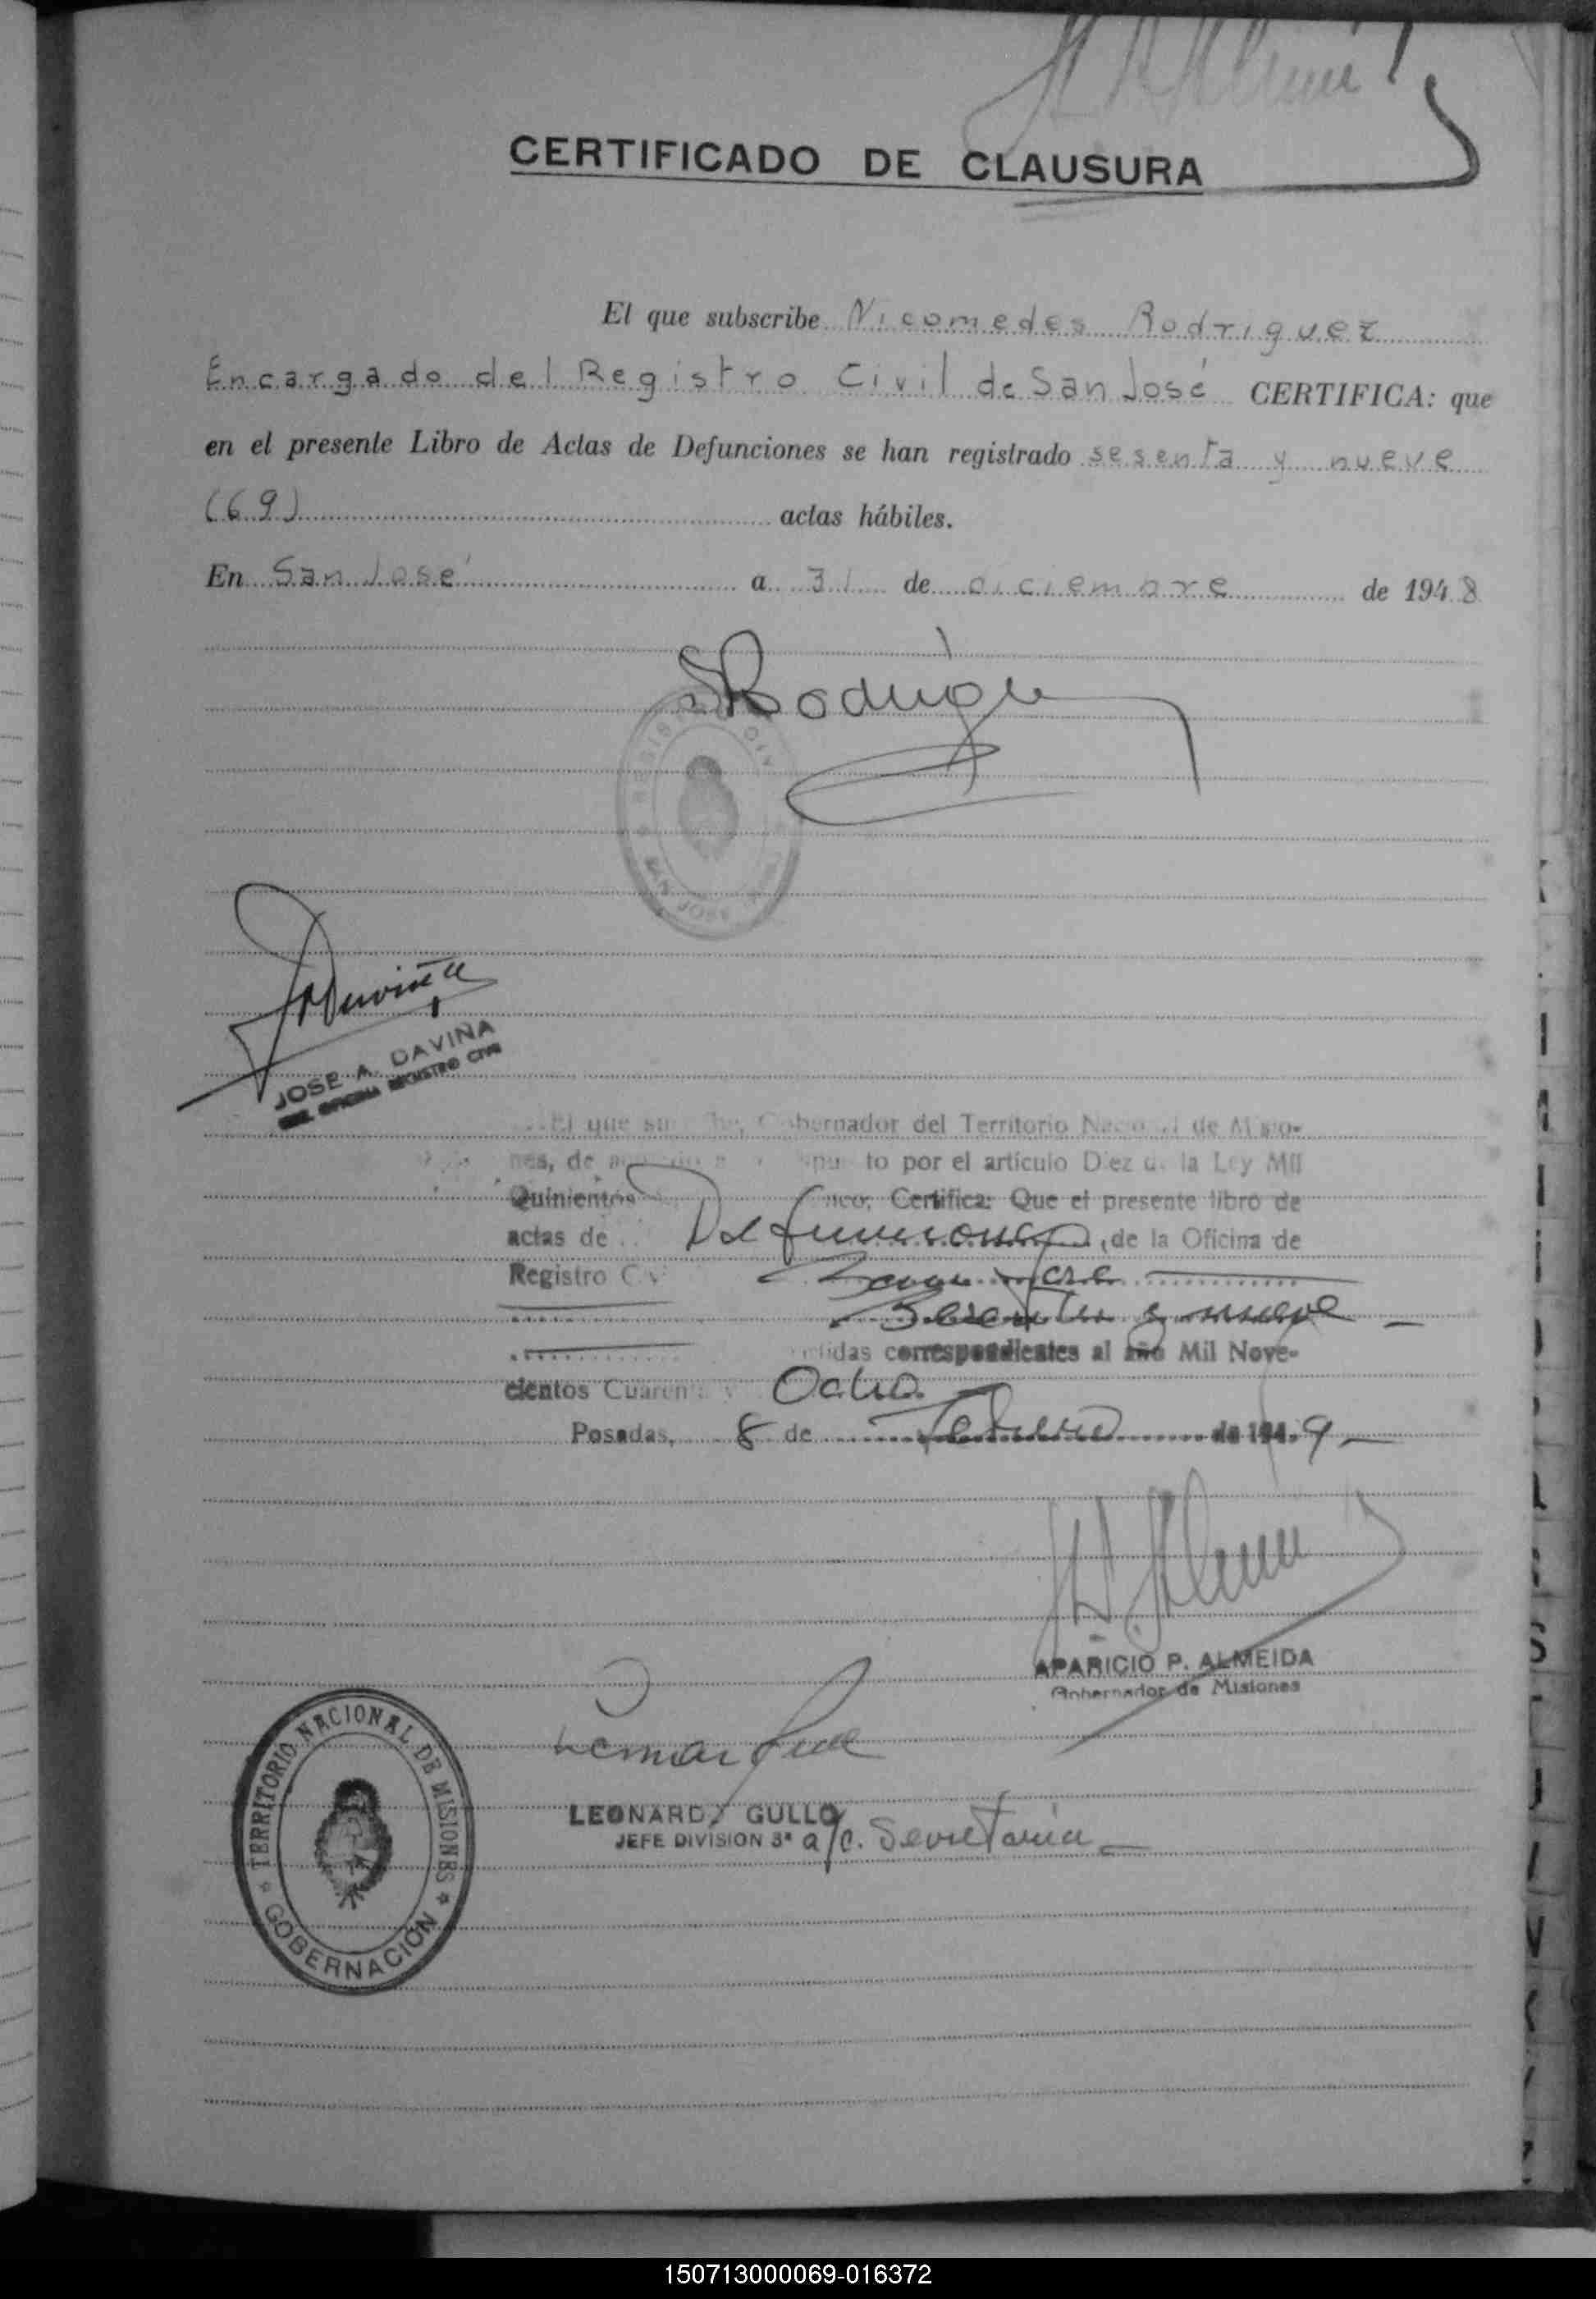 CERTIFICADO DE CLAUSURA
El que subscribe Nicomedes Rodriguez
Encargado del Registro Civil de San José CERTIFICA: que
en el presente Libro de Actas de Defunciones se han registrado sesenta y nueve
(69) actas hábiles.
En San José a 31 de diciembre de 1948
Rodrigu
SAN JOSE
JOSE A. DAVIÑA
OFICINA REGISTRO CIVIL
El que su be, Gobernador del Territorio Nacional de Misio-
nes, de to por el artículo Diez de la Ley Mil
Quinientos nco; Certifica: Que el presente libro de
actas de Defunciones, de la Oficina de
Registro Civ San José
Sesenta y nueve
tidas correspondientes al año Mil Nove-
cientos Cuarenta y Ocho
Posadas, 8 de Febrero de 1949
APARICIO P. ALMEIDA
Gobernador de Misiones
LEONARDO GULLO
JEFE DIVISION 3ª a/c. Secretaria
TERRITORIO NACIONAL DE MISIONES
GOBERNACIÓN
150713000069-016372